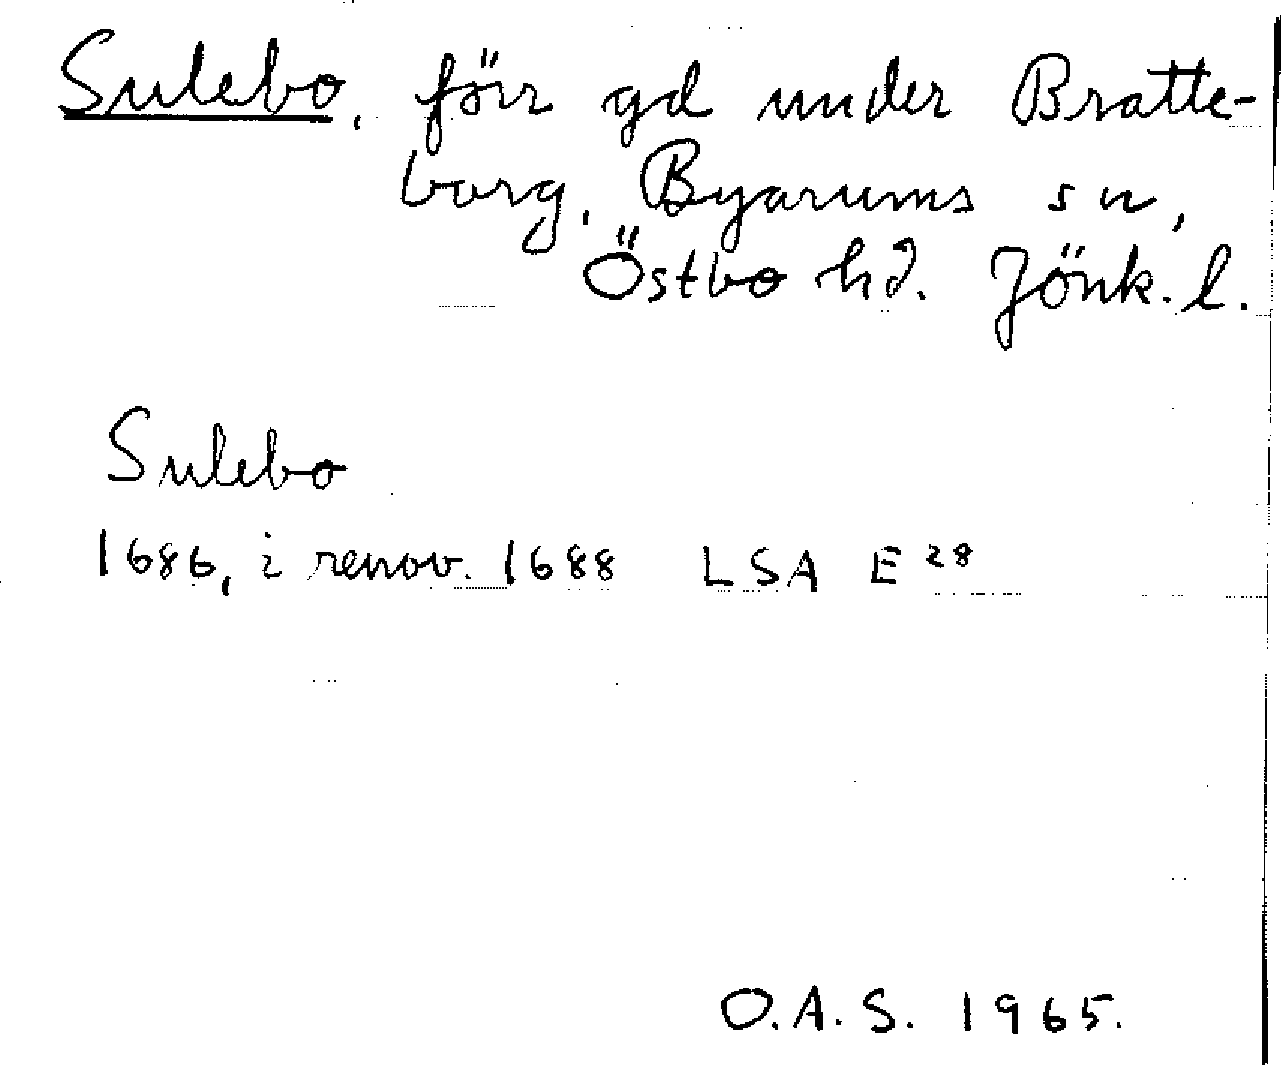 Sulebo, förr gd under Bratte-
borg, Byarums sn,
Östbo hd. Jönk. l.
Sulebo
1686, i renov. 1688 LSA E 28
O.A.S. 1965.